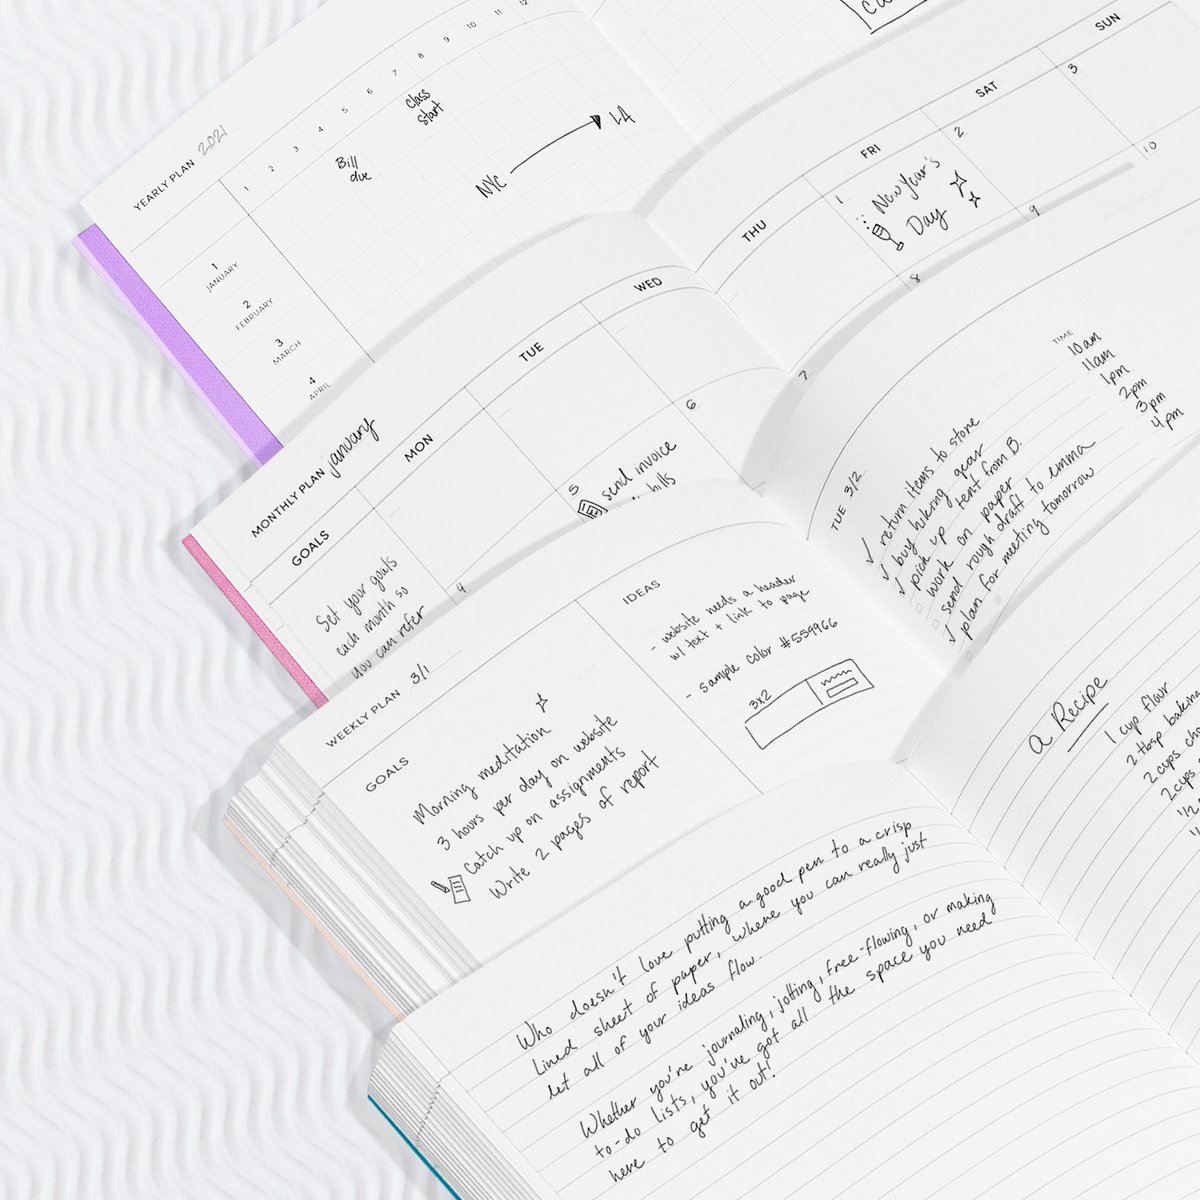 YEARLY PLAN 2021
1 2 3 4 5 6 7 8 9 10 11 12
Class
start
Bill
due
NYC
LA
1
JANUARY
2
FEBRUARY
3
MARCH
4
APRIL
MONTHLY PLAN January
GOALS
MON
TUE
WED
THU
FRI
SAT
SUN
Set your goals
each month so
you can refer
4
5
send invoice
bills
6
7
8
9
10
1
New Year's
Day
2
3
WEEKLY PLAN 3/1
GOALS
Morning meditation
3 hours per day on website
Catch up on assignments
Write 2 pages of report
IDEAS
- website needs a header
w/ text + link to page
- sample color #559966
3x2
TUE 3/2
TIME
return items to store
buy hiking gear
pick up tent from B.
work on paper
send rough draft to emma
plan for meeting tomorrow
10am
11am
1pm
2pm
3pm
4pm
Who doesn't love putting a good pen to a crisp
lined sheet of paper, where you can really just
let all of your ideas flow.
Whether you're journaling, jotting, free-flowing, or making
to-do lists, you've got all the space you need
here to get it out!
a Recipe
1 cup flour
2 tbsp baking
2 cups
2 cups
1/2